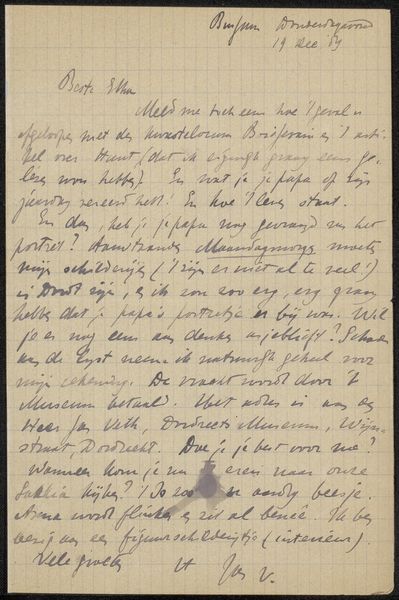 Bussum Donderdagavond
19 Dec. 89
Beste Etha
Meld me toch eens hoe 't geval is
afgeloopen met den
over (dat ik eigenlijk graag eens ge-
lezen wou hebben). En wat je je papa op zijn
jaardag vereerd hebt! En hoe 't leven staat.
En dan, heb je je papa nog gevraagd van het
portret? Aanstaanden Maandagmorgen moeten
mijn schilderijen ('t zijn er niet al te veel!)
in Dordt zijn, en ik zou zoo erg, erg graag
hebben dat je papa's portretje er bij was. Wil
je er nog eens aan denken asjeblieft? Schade
aan de lijst neem ik natuurlijk geheel voor
mijn rekening. De vracht wordt door 't
Museum betaald. Het adres is aan den
Heer Jan Veth, Dordrechts Museum, Wijn-
straat, Dordrecht. Doe je je best voor me?
Wanneer kom je nu eens naar onze
Saskia kijken? 't Is zoo'n aardig beesje.
Anna wordt flinker en zit al beneê. Ik ben
bezig aan een figuurschilderijtje (interieur).
Vele groeten tt Jan V.